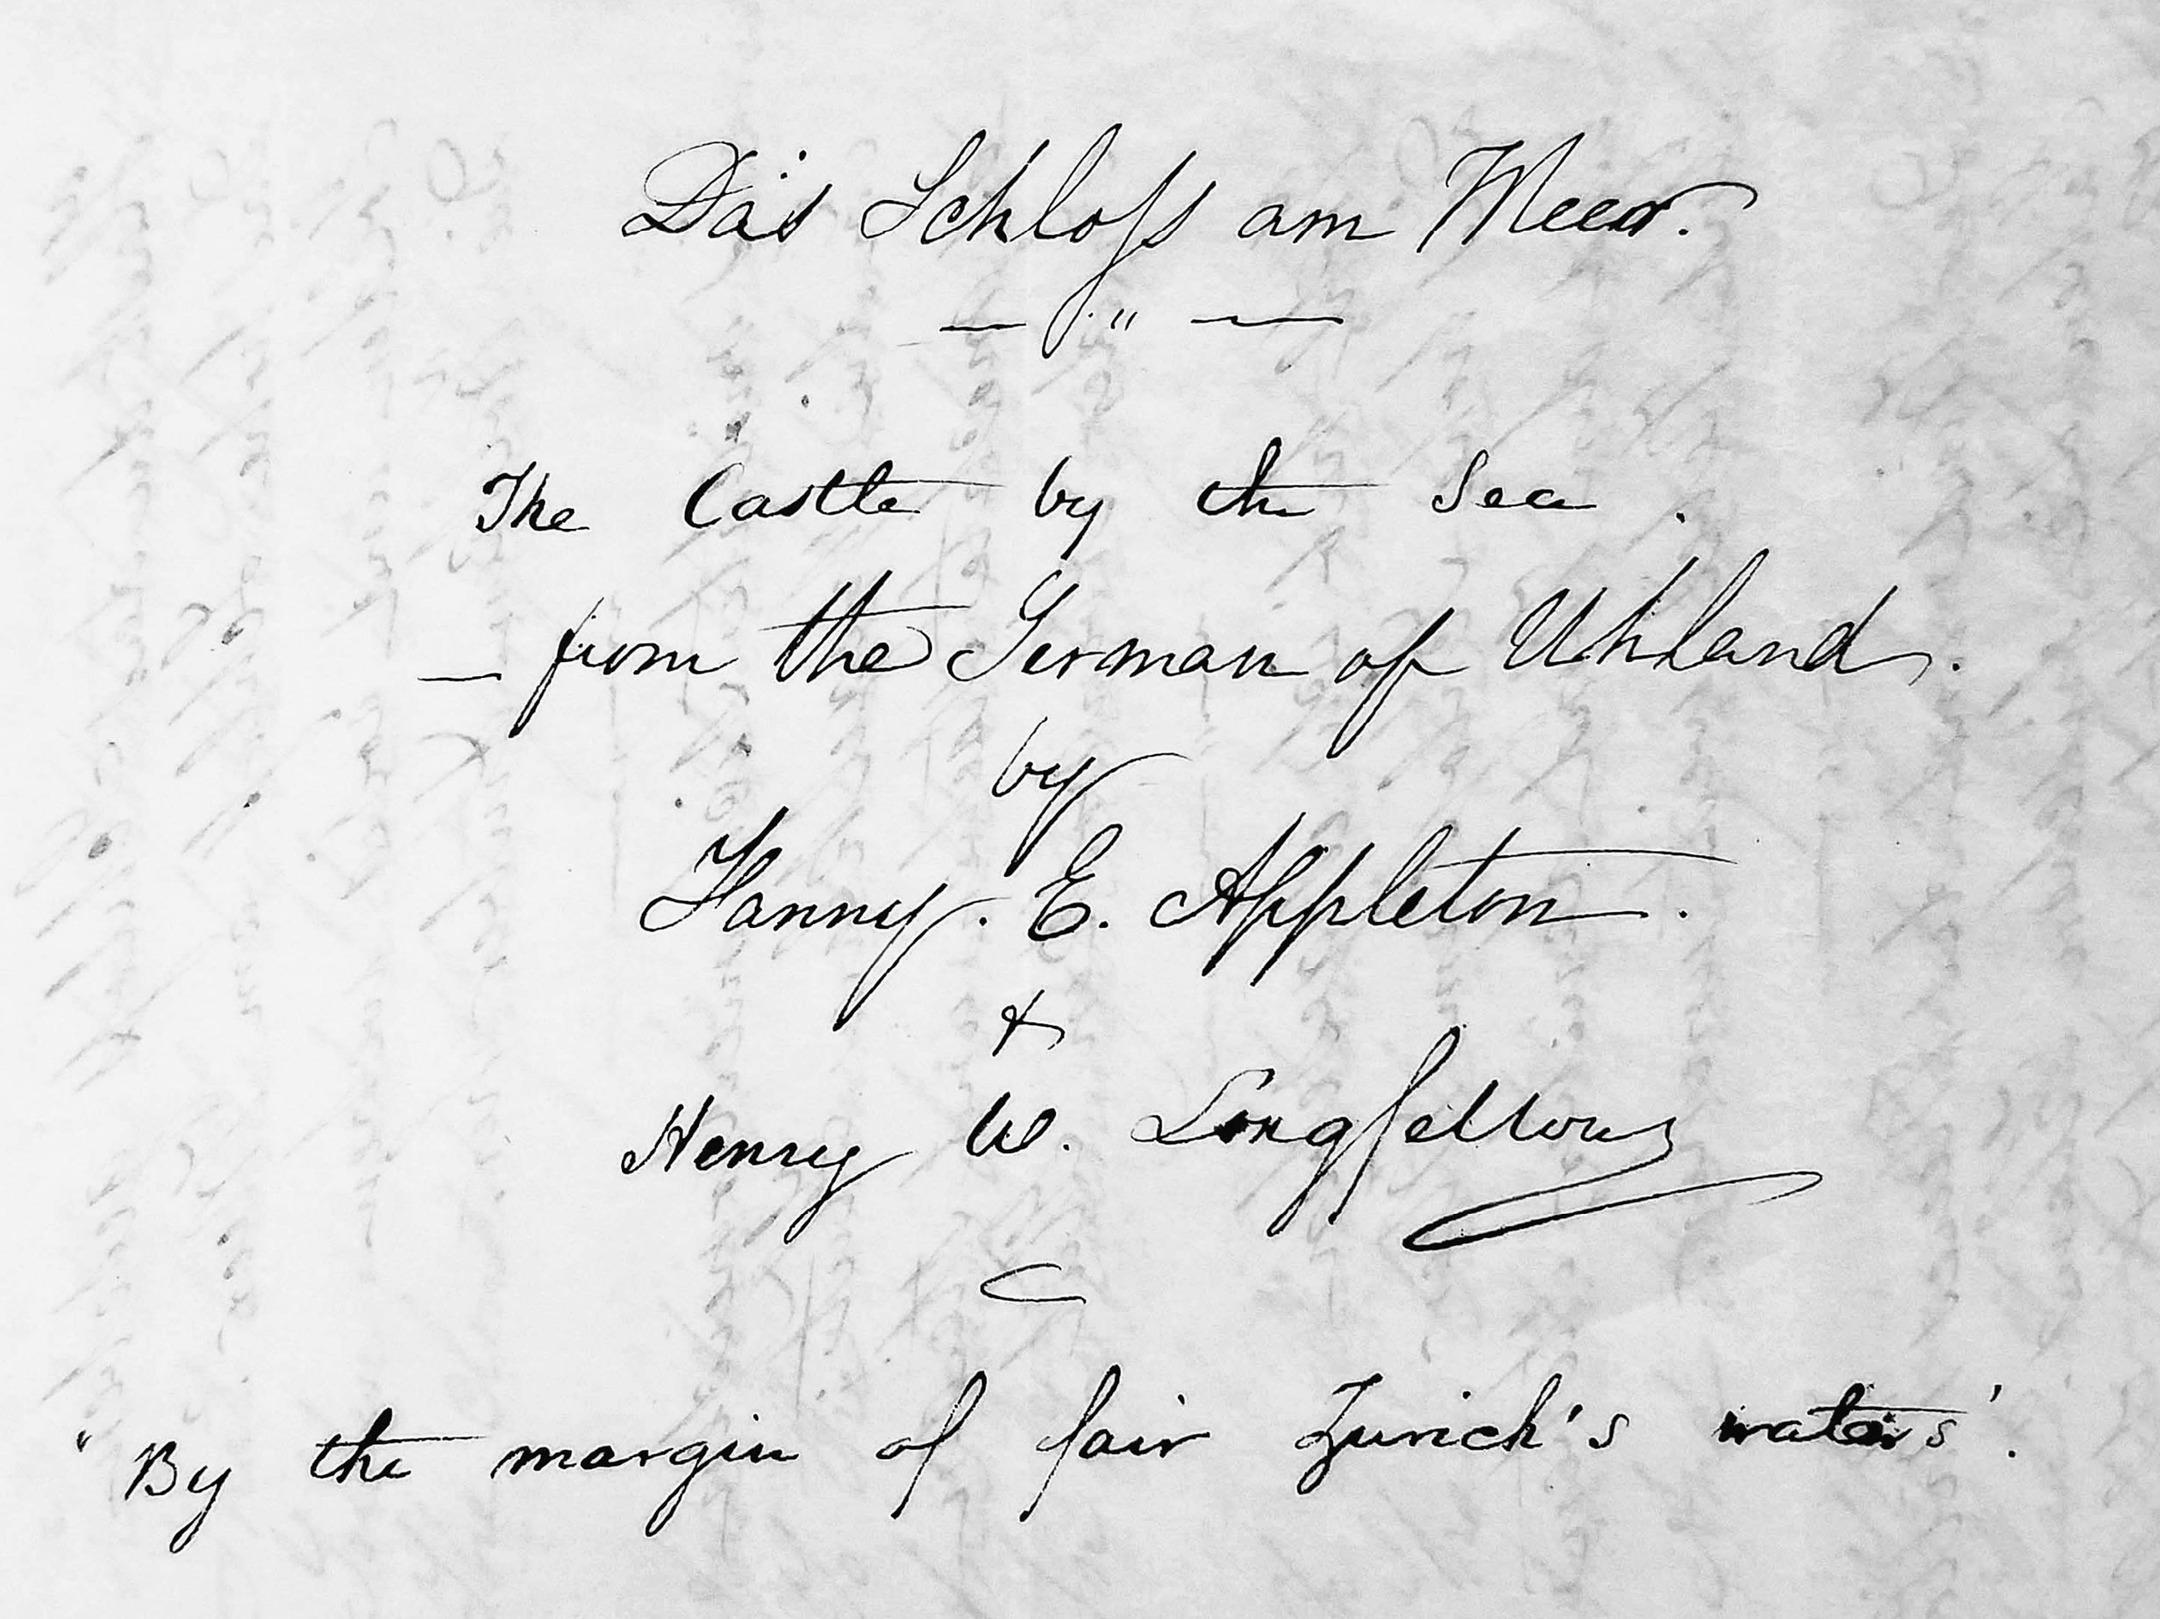 Das Schloſs am Meer.
— " —
The Castle by the Sea.
— from the German of Uhland.
by
Fanny. E. Appleton.
&
Henry W. Longfellow
"By the margin of fair Zurich's waters'.